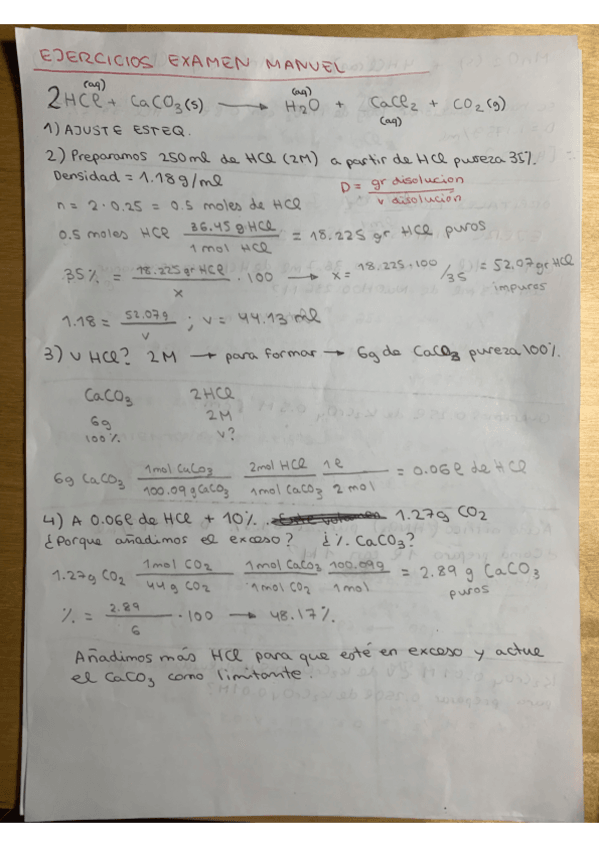 EJERCICIOS EXAMEN MANUEL
2HCl(aq) + CaCO3(s) → H2O(aq) + CaCl2(aq) + CO2(g)
1) AJUSTE ESTEQ.
2) Preparamos 250ml de HCl (2M) a partir de HCl pureza 35%.
Densidad = 1.18 g/ml D = gr disolucion / v disolucion
n = 2 · 0.25 = 0.5 moles de HCl
0.5 moles HCl 36.45 g HCl / 1 mol HCl = 18.225 gr HCl puros
35% = 18.225 gr HCl / x · 100 → x = 18.225 · 100 / 35 = 52.07 gr HCl impuros
1.18 = 52.07g / v ; v = 44.13 ml
3) v HCl? 2M → para formar → 6g de CaCO3 pureza 100%.
CaCO3 2HCl
6g 2M
100% v?
6g CaCO3 1mol CaCO3 / 100.09 g CaCO3 2mol HCl / 1mol CaCO3 1l / 2 mol = 0.06l de HCl
4) A 0.06l de HCl + 10%. 1.27g CO2
¿Porque añadimos el exceso? ¿%. CaCO3?
1.27g CO2 1mol CO2 / 44g CO2 1mol CaCO3 / 1mol CO2 100.09g / 1mol = 2.89 g CaCO3 puros
% = 2.89 / 6 · 100 → 48.17%.
Añadimos más HCl para que esté en exceso y actue
el CaCO3 como limitante.